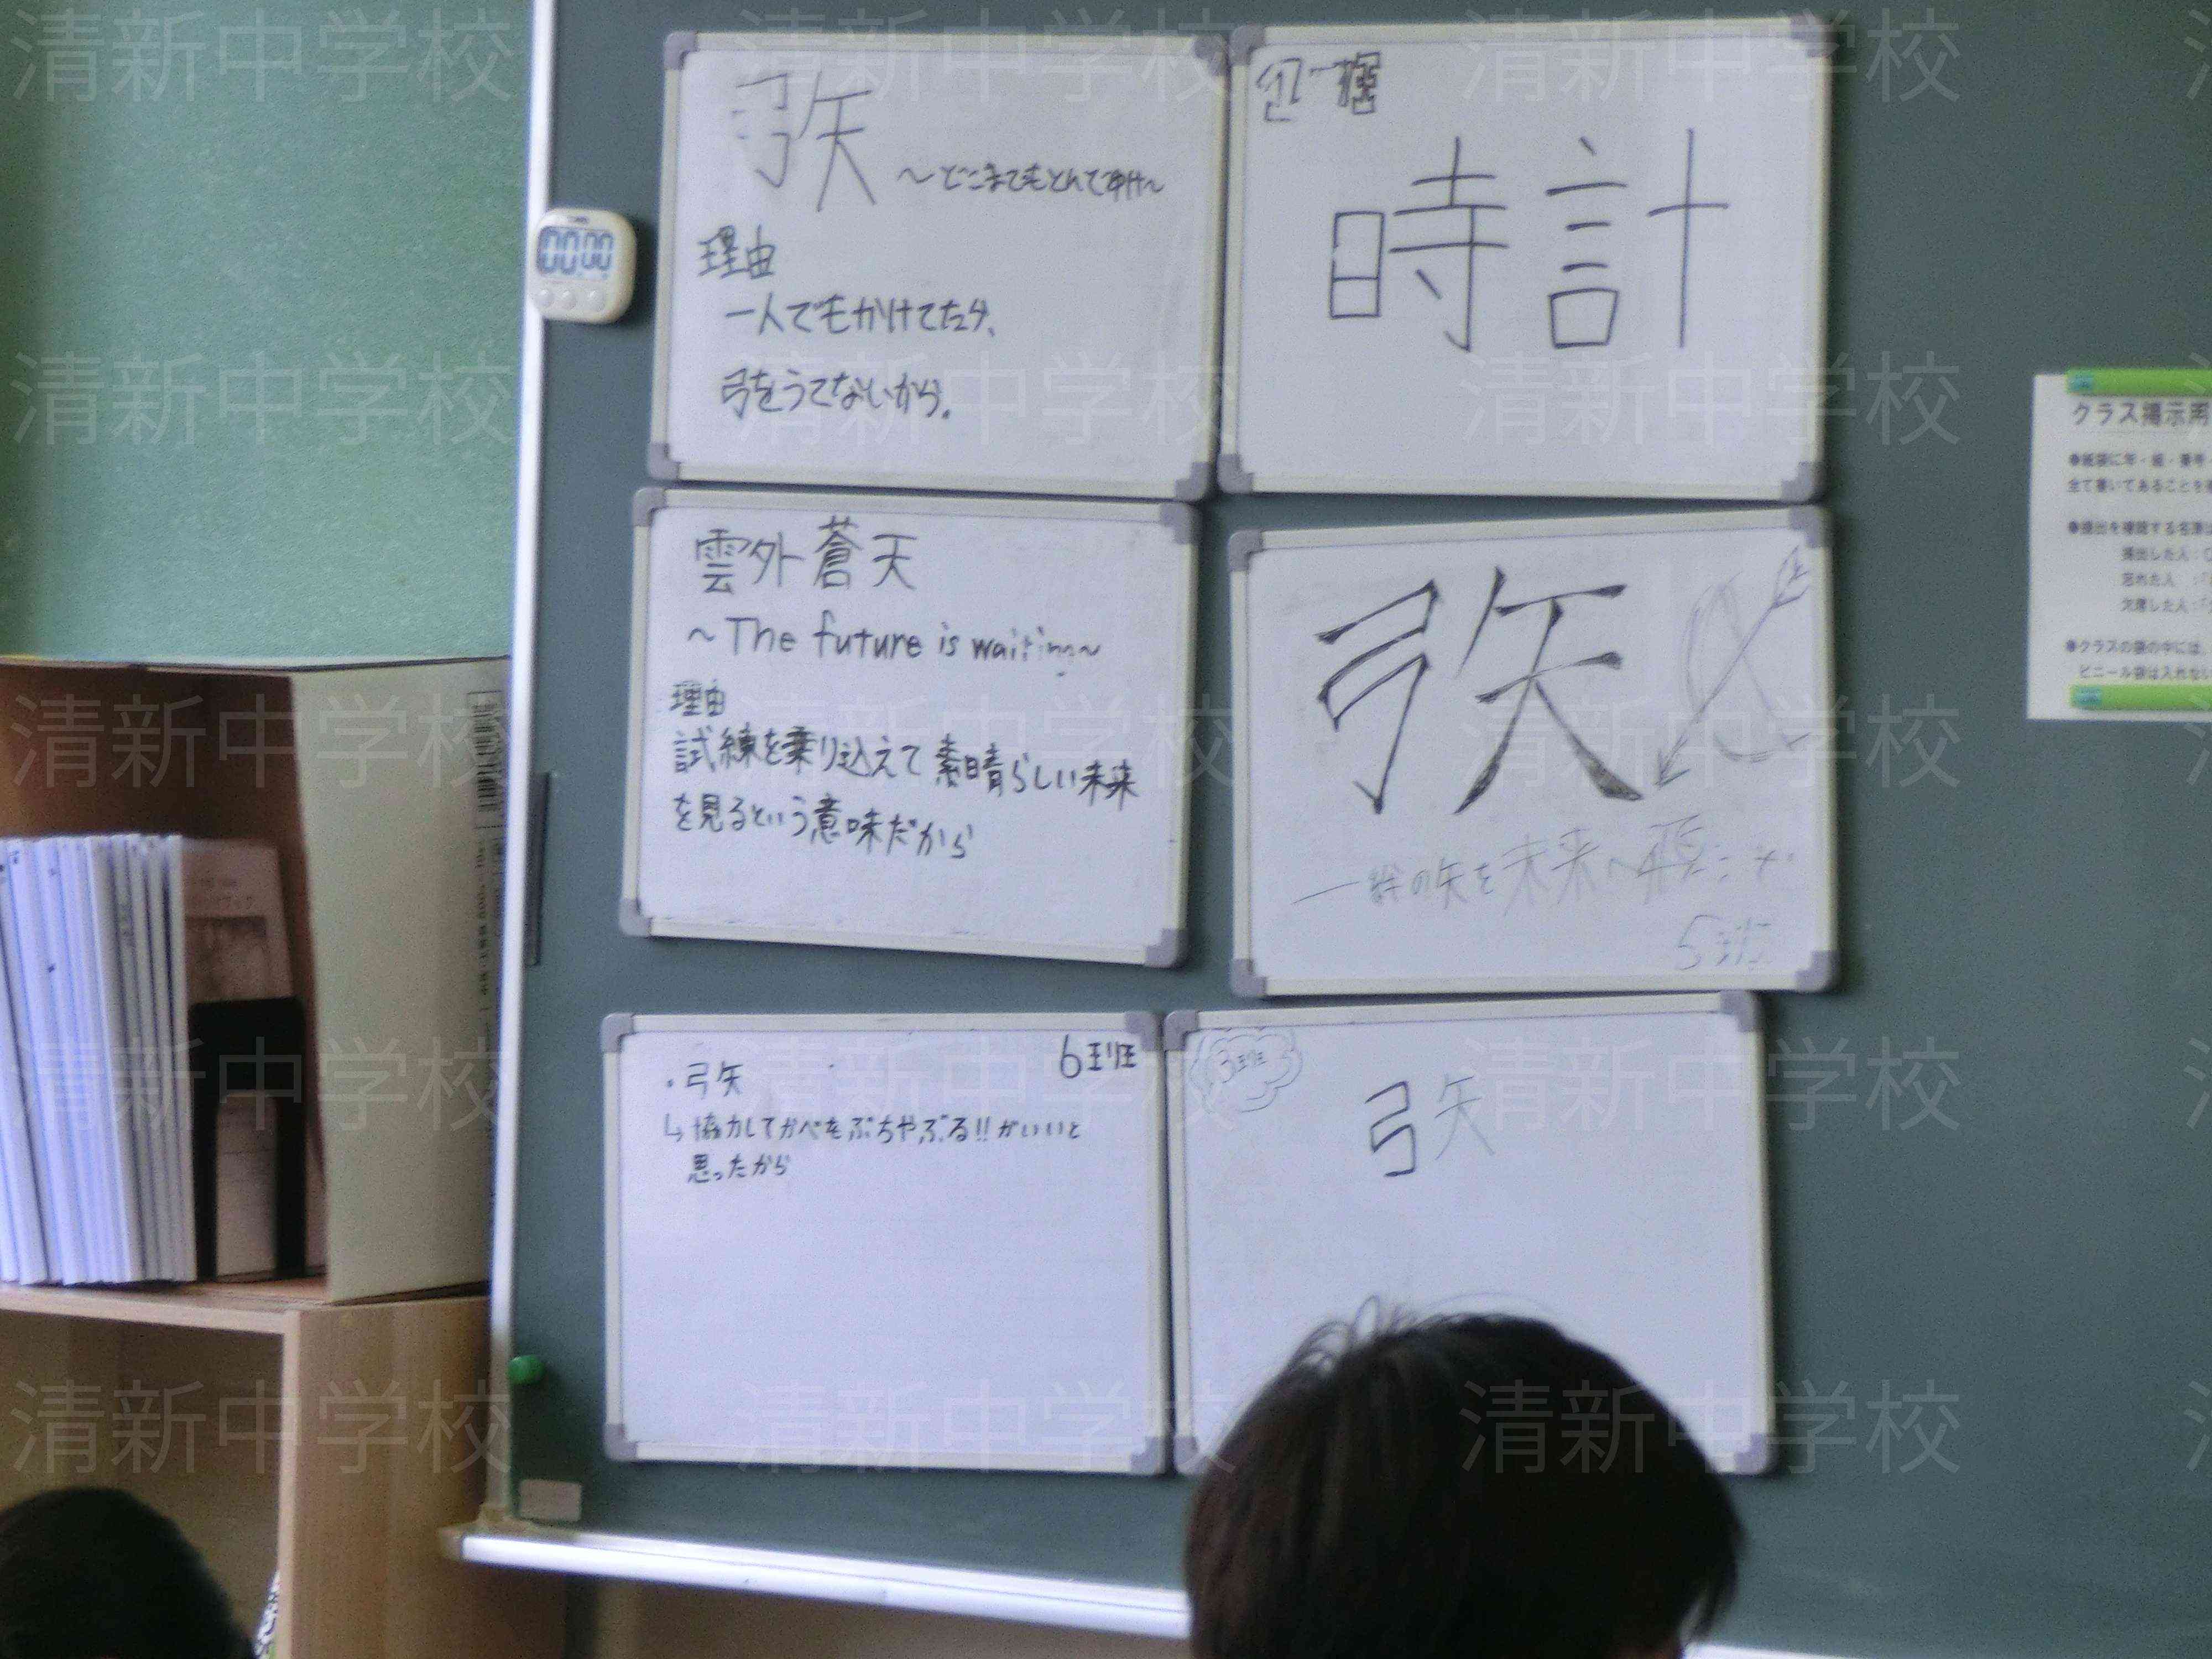 弓矢 ～どこまでもとんでゆけ～
理由
一人でもかけてたら、
弓をうてないから。
時計
雲外蒼天
～The future is waiting～
理由
試練を乗り込えて素晴らしい未来
を見るという意味だから
弓矢
の矢を未来へ
5班
6班
・弓矢
↳協力してかべをぶちやぶる!!がいいと
思ったから
3班
弓矢
00:00
クラス掲示用
清新中学校